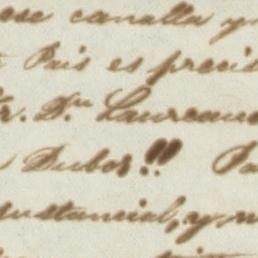 ese canalla y
Pais es preci
r. Dn Laurean
Dubos!! Pa
sustancial, y